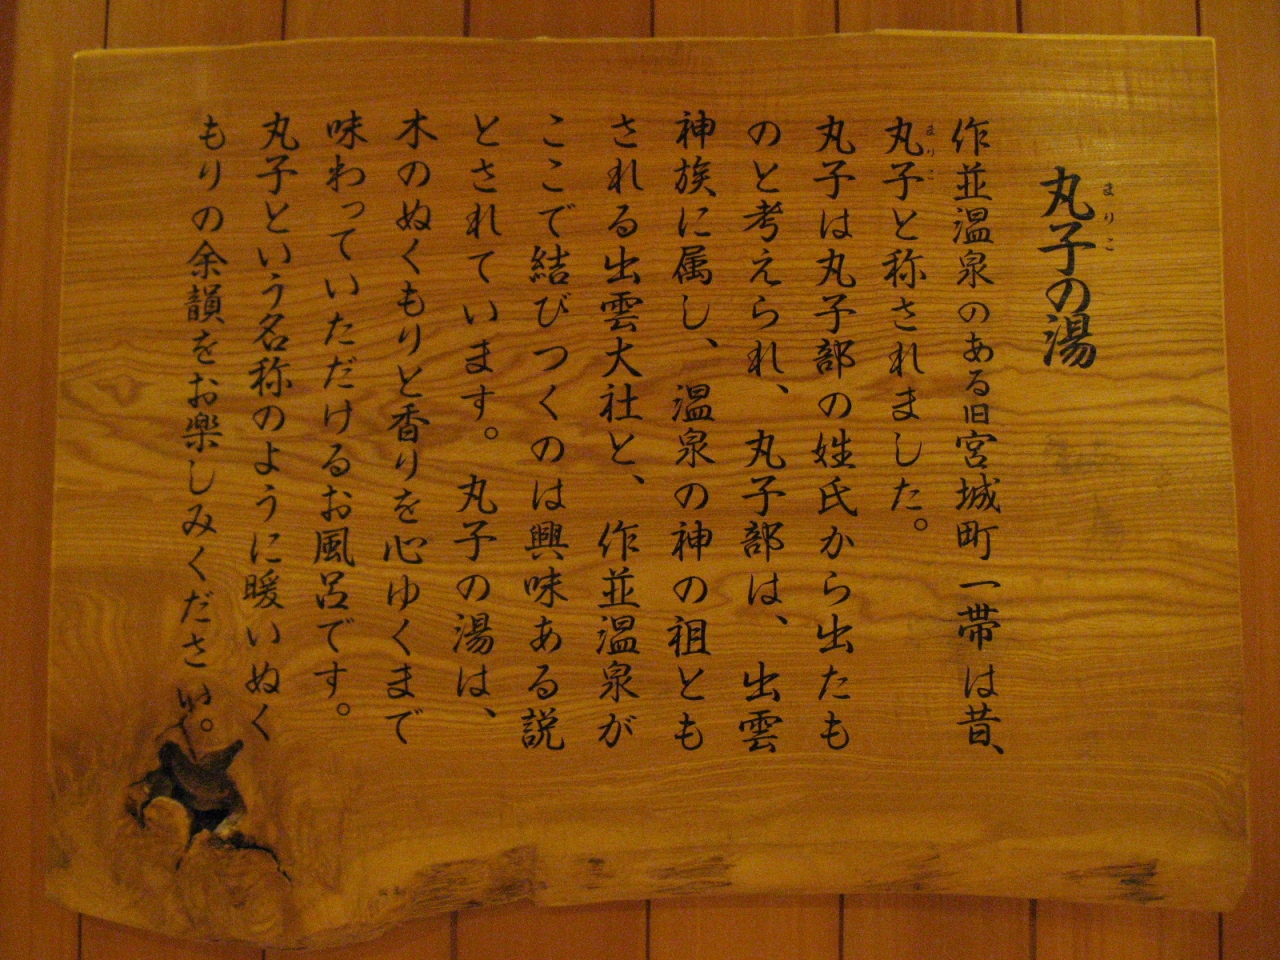 丸子の湯
まりこ
作並温泉のある旧宮城町一帯は昔、
丸子と称されました。
まりこ
丸子は丸子部の姓氏から出たも
のと考えられ、丸子部は、出雲
神族に属し、温泉の神の祖とも
される出雲大社と、作並温泉が
ここで結びつくのは興味ある説
とされています。丸子の湯は、
木のぬくもりと香りを心ゆくまで
味わっていただけるお風呂です。
丸子という名称のように暖いぬく
もりの余韻をお楽しみください。